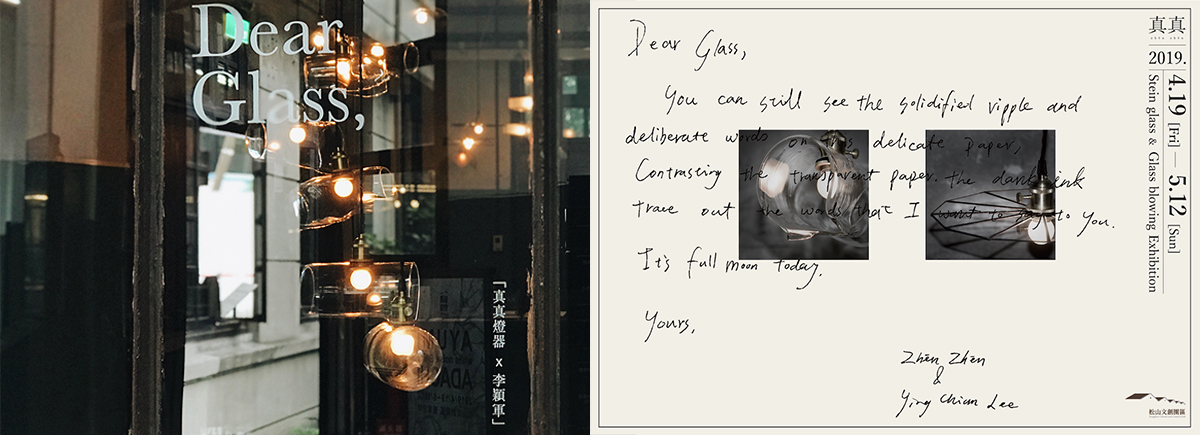 Dear
Glass,
「真真燈器 x 李穎軍」
AYU
ADA
Dear Glass,
You can still see the solidified ripple and
deliberate words on this delicate paper,
Contrasting the transparent paper. the dark ink
trace out the words that I want to say to you.
It's full moon today.
Yours,
Zhēn Zhēn
&
Ying Chiun Lee
真真
zhēn zhēn
2019.
4.19 [Fri] — 5.12 [Sun]
Stein glass & Glass blowing Exhibition
松山文創園區